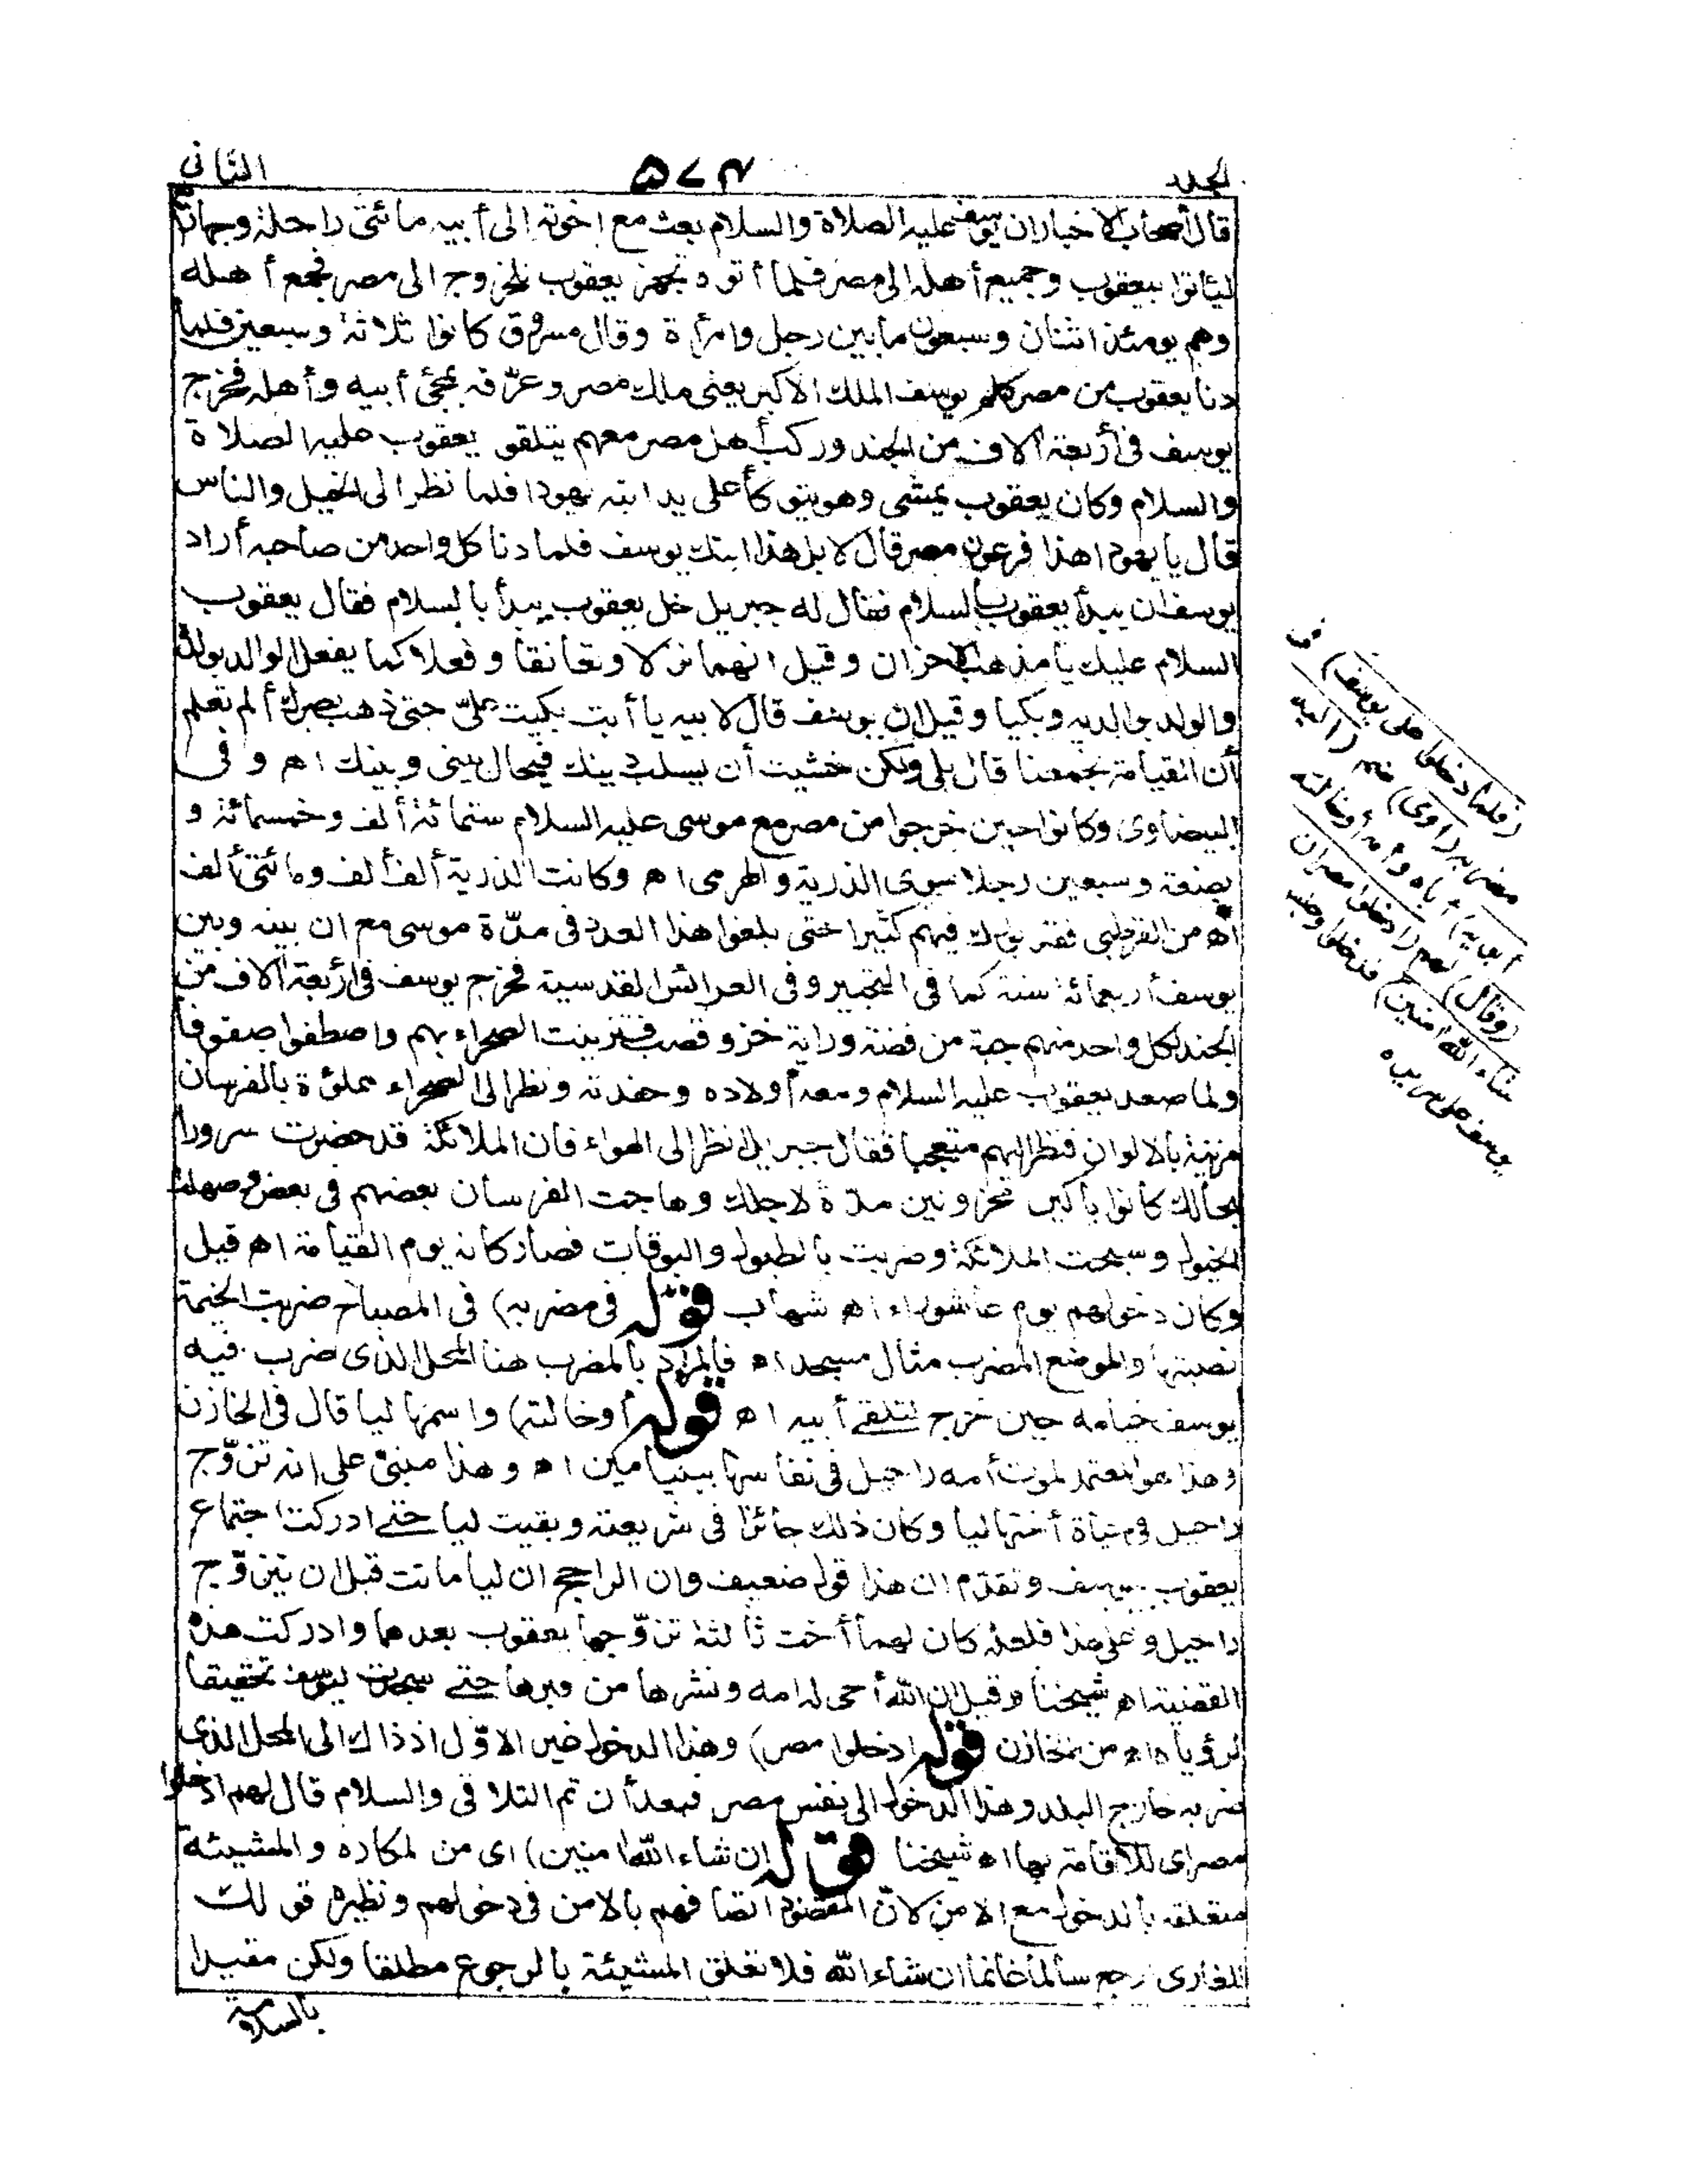 المجلد
٥٧٤
الثانى
قال أصحاب الاخبار ان يوسف عليه الصلاة والسلام بعث مع اخوته إلى أبيه مائتى راحلة وجهازا
ليأتوا بيعقوب وجميع أهله الى مصر فلما أتوه تجهز يعقوب للخروج الى مصر فجمع أهله
وهم يومئذ اثنان وسبعون ما بين رجل وامرأة وقال مسروق كانوا ثلاثة وسبعين فلما
دنا يعقوب من مصر كلم يوسف الملك الاكبر يعنى ملك مصر وعرّفه بمجئ أبيه وأهله فخرج
يوسف فى أربعة آلاف من الجند وركب أهل مصر معهم يتلقو يعقوب عليه الصلاة
والسلام وكان يعقوب يمشى وهو يتوكأ على يد ابنه يهودا فلما نظر الى الخيل والناس
قال يا يهودا هذا فرعون مصر قال لا بل هذا ابنك يوسف فلما دنا كل واحد من صاحبه أراد
يوسف ان يبدأ يعقوب بالسلام فقال له جبريل خل يعقوب يبدأ بالسلام فقال يعقوب
السلام عليك يا مذهب الاحزان وقيل انهما نزلا وتعانقا وفعلا كما يفعل الوالد بولده
والولد بوالديه وبكيا وقيل ان يوسف قال لابيه يا أبت بكيت علىّ حتى ذهب بصرك ألم تعلم
أن القيامة تجمعنا قال بلى ولكن خشيت أن يسلب دينك فيحال بينى وبينك اه وفى
البيضاوى وكانوا حين خرجوا من مصر مع موسى عليه السلام ستمائة ألف وخمسمائة و
بضعة وسبعين رجلا سوى الذرية والهرمى اه وكانت الذرية ألف ألف ومائتى ألف
اه من القرطبى فقد بورك فيهم كثيرا حتى بلغوا هذا العدد فى مدّة موسى مع ان بينه وبين
يوسف أربعمائة سنة كما فى التحبير وفى العرائس القدسية فخرج يوسف فى أربعة آلاف من
الجند لكل واحد منهم جبة من فضة وراية خز وقصب فتزينت الصحراء بهم واصطفوا صفوفا
ولما صعد يعقوب عليه السلام ومعه أولاده وحفدته ونظر الى الصحراء مملؤة بالفرسان
مزينة بالالوان فنظر اليهم متعجبا فقال جبريل انظر الى الهواء فان الملائكة قد حضرت سرورا
بحالك كانوا باكين محزونين مدّة لاجلك وهاجت الفرسان بعضهم فى بعض وصهلت
الخيول وسبحت الملائكة وضربت بالطبول والبوقات فصار كانه يوم القيامة اه قيل
وكان دخولهم يوم عاشوراء اه شهاب قوله فى مضربه) فى المصباح ضربت الخيمة
نصبتها والموضع المضرب مثال مسجد اه فالمراد بالمضرب هنا المحل الذى ضرب فيه
يوسف خيامه حين خرج لتلقى أبيه اه قوله أو خالته) واسمها ليا قال فى الخازن
وهذا هو المعتمد لموت أمه راحيل فى نفاسها ببنيامين اه وهذا مبنى على انه تزوّج
راحيل فى حياة أختها ليا وكان ذلك جائزا فى شريعته وبقيت ليا حتى ادركت اجتماع
يعقوب بيوسف وتقدم ان هذا قول ضعيف وان الراجح ان ليا ماتت قبل ان يتزوّج
راحيل وعلى هذا فلعله كان لهما أخت ثالثة تزوّجها يعقوب بعدهما وادركت هذه
القضية اه شيخنا وقيل ان الله أحى له امه ونشرها من قبرها حتى سجدت ليوسف تحقيقا
لرؤياه اه من الخازن قوله ادخلوا مصر) وهذا الدخول غير الاوّل اذ ذاك الى المحل الذى
ضربه خارج البلد وهذا الدخول الى نفس مصر فبعد أن تم التلاقى والسلام قال لهم ادخلوا
مصر اى للاقامة بها اه شيخنا قوله ان شاء الله آمنين) اى من المكاره والمشيئة
متعلقة بالدخول مع الامن لانّ المقصود اتصافهم بالامن فى دخولهم ونظيره قولك
للغازى ارجع سالما غانما ان شاء الله فلا تعلق المشيئة بالرجوع مطلقا ولكن مقيدا
بالسلامة
(فلما دخلوا على يوسف) فى
مضربه (آوى) ضم (اليه
أبويه) أباه وأمه أو خالته
(وقال) لهم (ادخلوا مصر ان
شاء الله آمنين) فدخلوا وجلس
يوسف على سريره